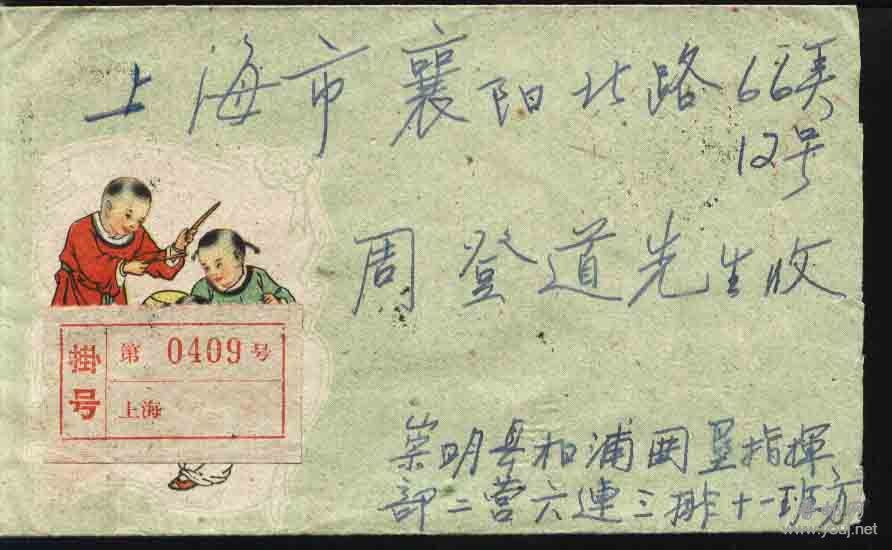 上海市襄阳北路66弄
12号
周登道先生收
掛号
第 0409 号
上海
崇明县 浦 垦指揮
部二营六連三排十一班
www.youj.net